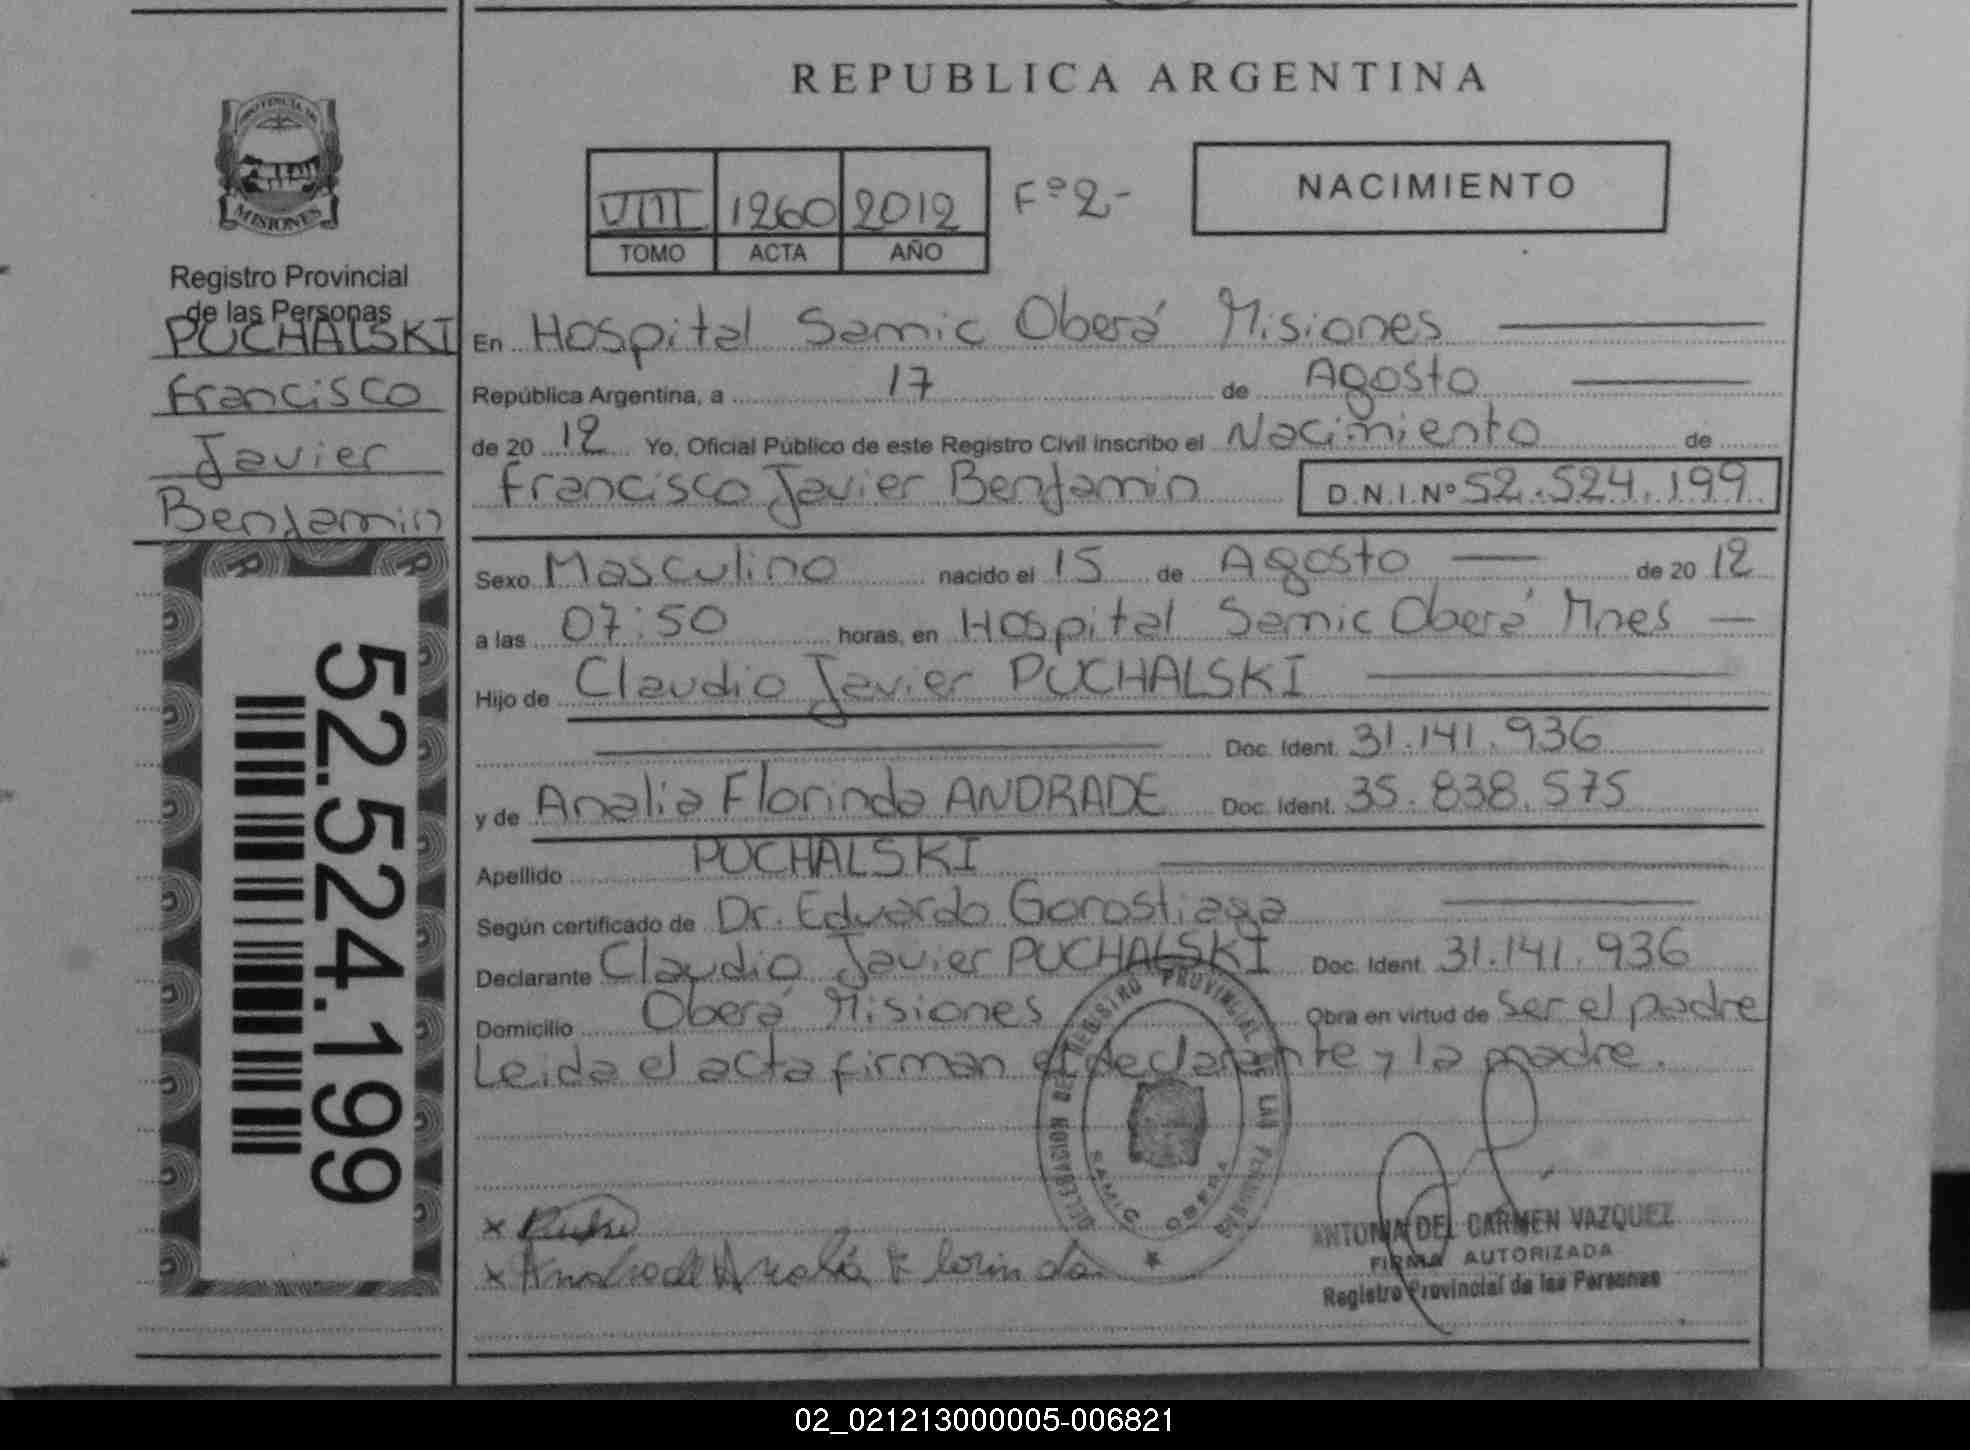 REPUBLICA ARGENTINA
PROVINCIA DE
MISIONES
Registro Provincial
de las Personas
PUCHALSKI
Francisco
Javier
Benjamin
52.524.199
VIII 1260 2012 Fº 2-
TOMO ACTA AÑO
NACIMIENTO
En Hospital Samic Oberá Misiones
República Argentina, a 17 de Agosto
de 2012 Yo, Oficial Público de este Registro Civil inscribo el Nacimiento de
Francisco Javier Benjamin D.N.I.Nº 52.524.199
Sexo Masculino nacido el 15 de Agosto de 2012
a las 07:50 horas, en Hospital Samic Oberá Mnes
Hijo de Claudio Javier PUCHALSKI
Doc. Ident. 31.141.936
y de Analia Florinda ANDRADE Doc. Ident. 35.838.575
Apellido PUCHALSKI
Según certificado de Dr. Eduardo Gorostiaga
Declarante Claudio Javier PUCHALSKI Doc. Ident. 31.141.936
Domicilio Oberá Misiones Obra en virtud de ser el padre
Leida el acta firman el declarante y la madre.
DELEGACION DEL REGISTRO PROVINCIAL DE LAS PERSONAS
SAMIC OBERA
x
x Andrade Analia Florinda
ANTONIA DEL CARMEN VAZQUEZ
FIRMA AUTORIZADA
Registro Provincial de las Personas
02_021213000005-006821